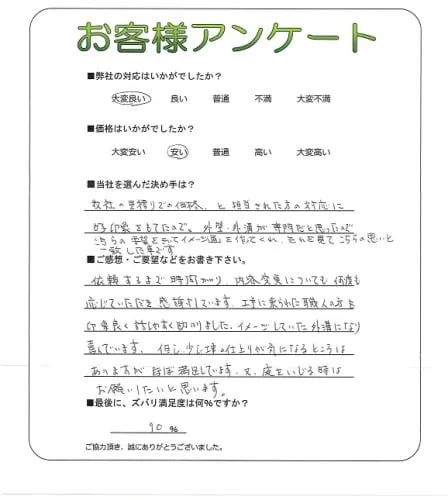 お客様アンケート
■弊社の対応はいかがでしたか?
大変良い 良い 普通 不満 大変不満
■価格はいかがでしたか?
大変安い 安い 普通 高い 大変高い
■当社を選んだ決め手は?
数社の見積りでの価格、と担当された方の対応に
好印象をもてたので。外壁・外溝が専門だと思ったので
こちらの希望をきいてイメージ画を作ってくれ、それを見てこちらの思いと
一致した事です
■ご感想・ご要望などをお書き下さい。
依頼するまで時間かかり、内容変更についても何度も
応じていただき感謝しています。工事に来られた職人の方も
印象良く話しやすく助かりました。イメージしていた外溝になり
喜んでいます。但し、少し壁の仕上りが気になるところは
ありますがほぼ満足しています。又、庭をいじる時は
お願いしたいと思います。
■最後に、ズバリ満足度は何%ですか?
90 %
ご協力頂き、誠にありがとうございました。